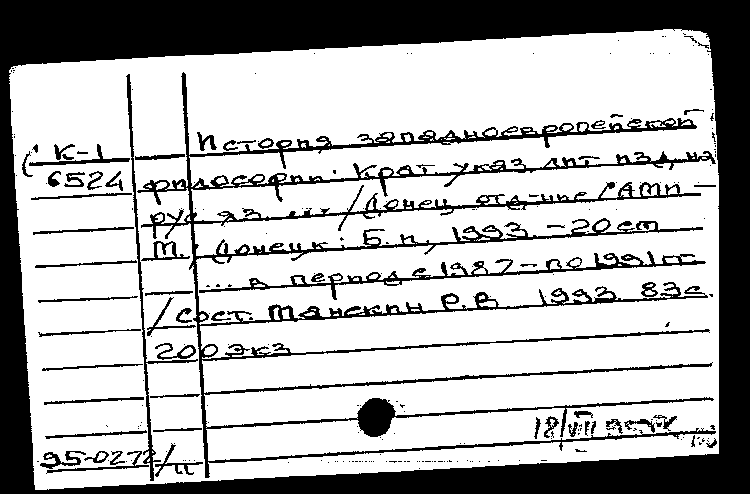 К-1
6524
История западноевропейской
философии: Крат. указ. лит. изд. на
рус. яз. ... / Донец. отд-ние САМИ –
М.; Донецк: Б.и., 1993. – 20 см
... в период с 1987 – по 1991 гг.
/ сост. Р.В. 1993. 83 с.
200 экз
18/VII 95
95-0272/